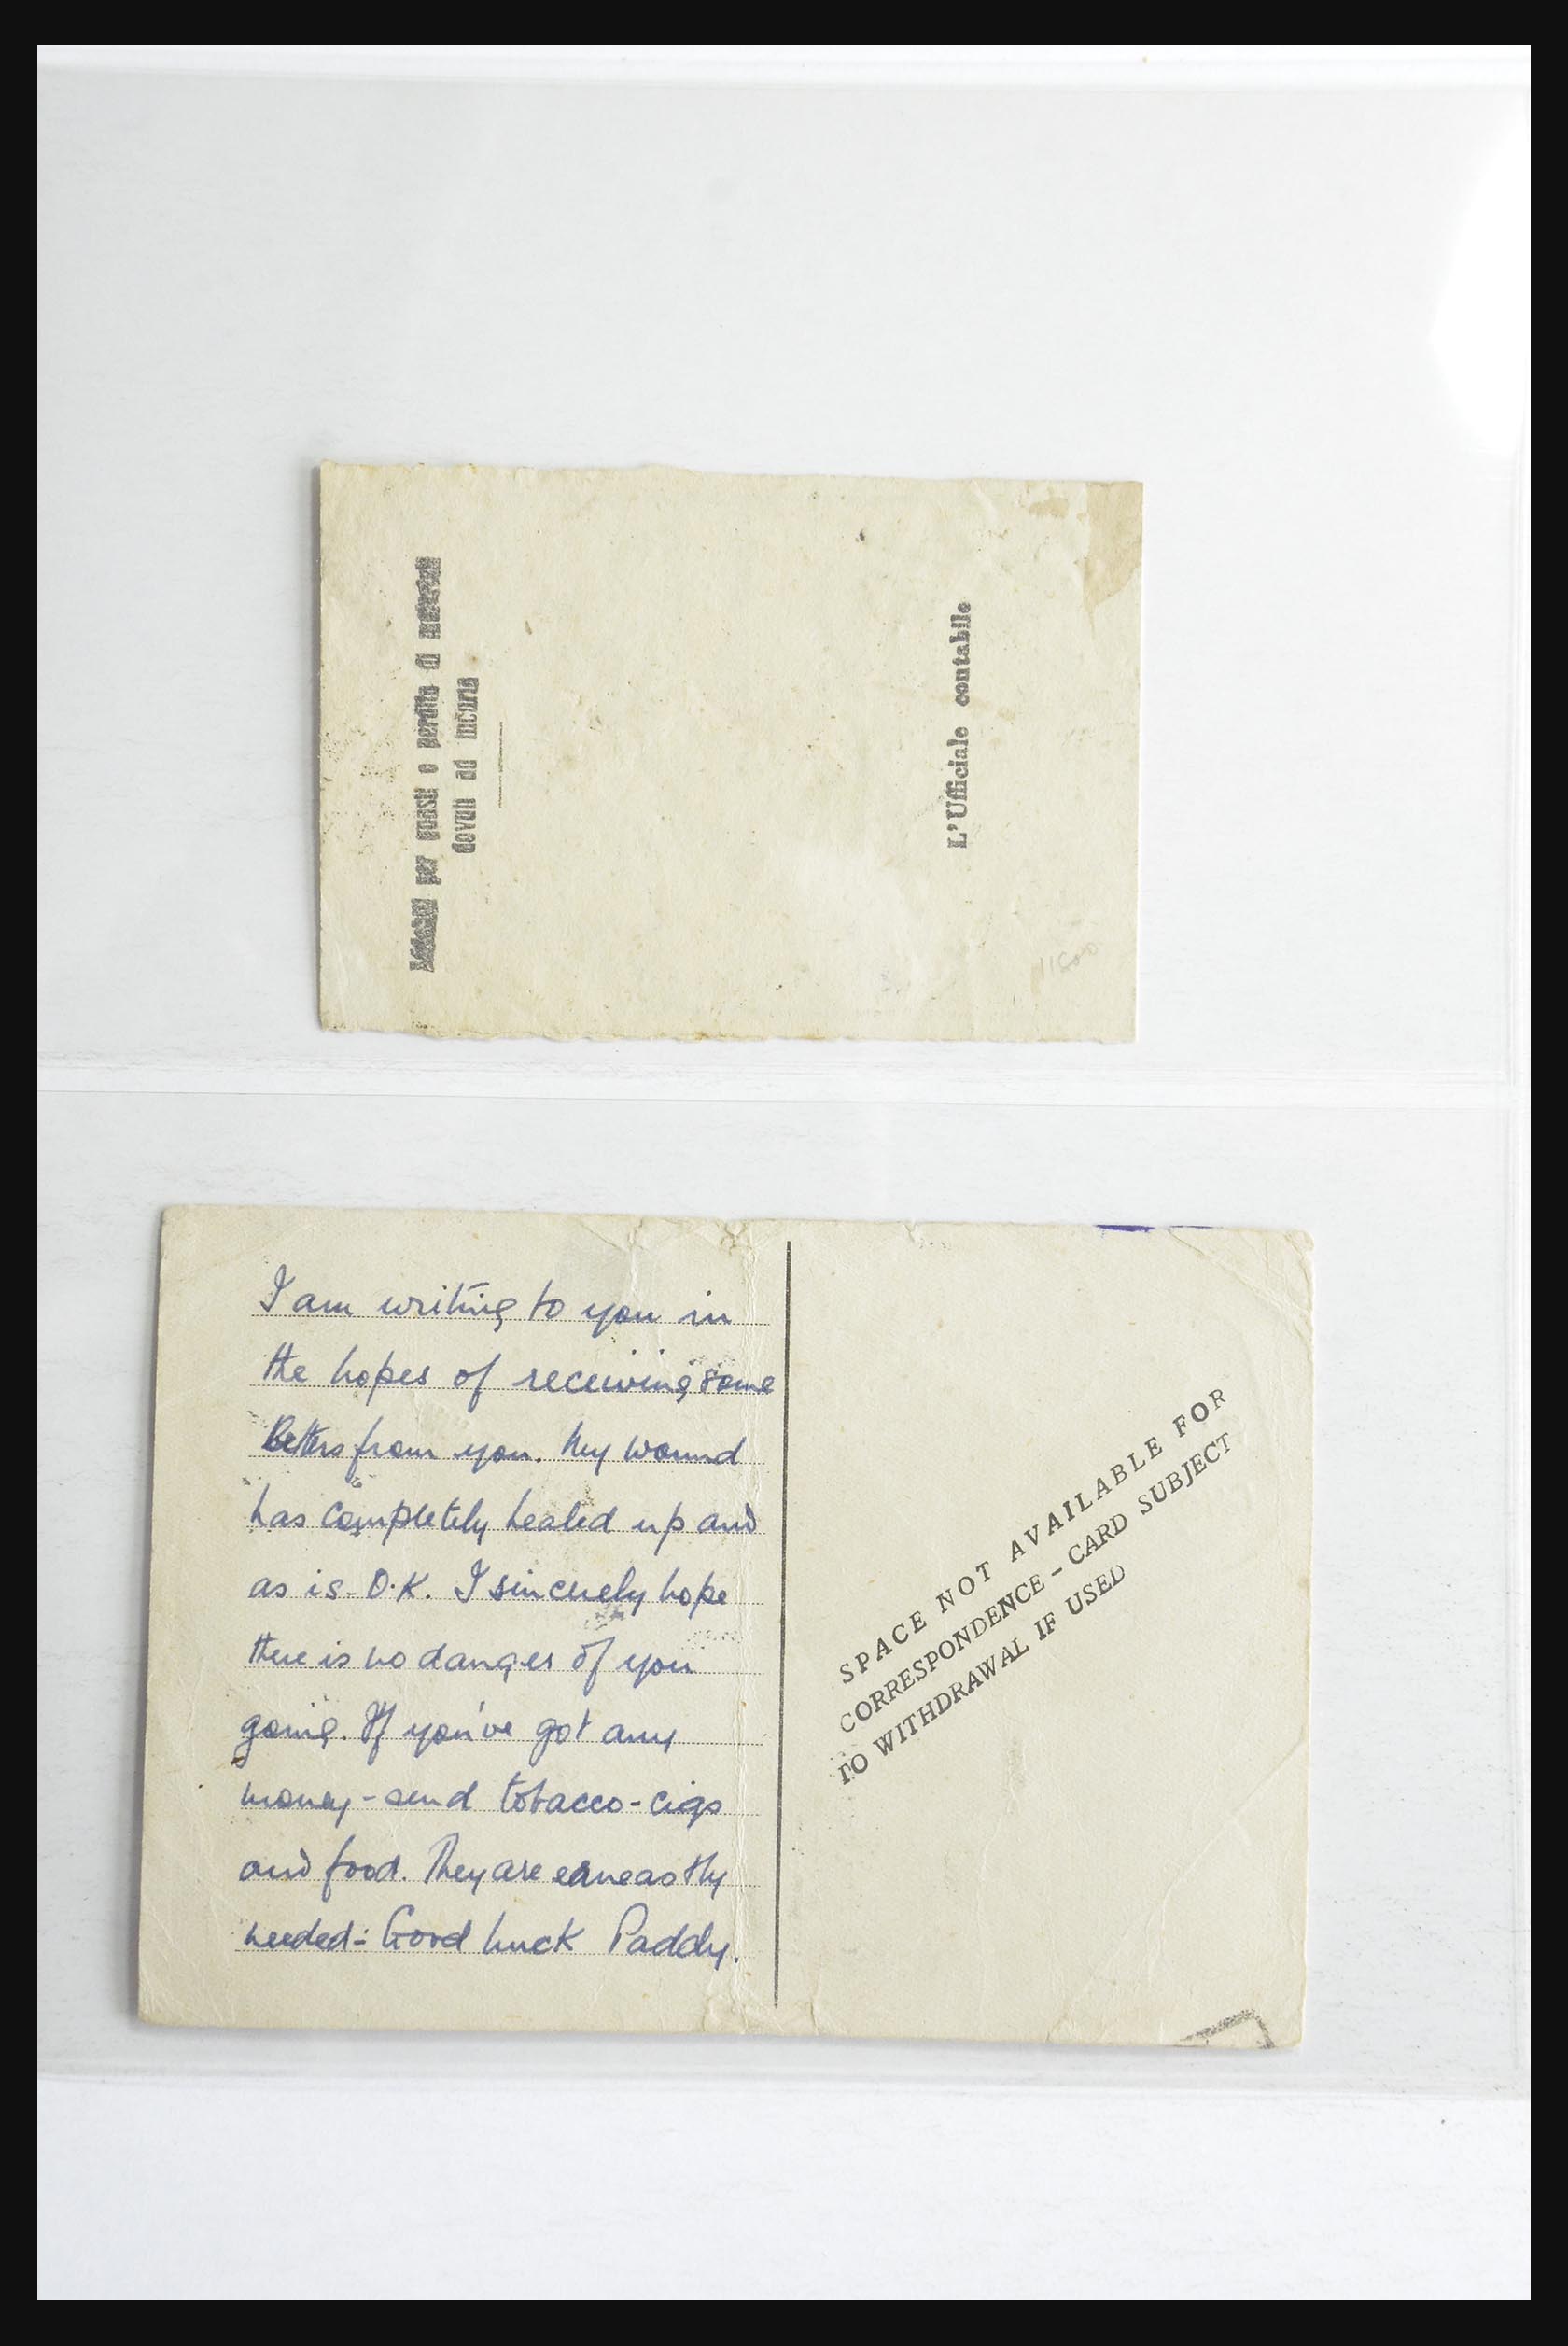 Addebiti per guasti e perdita di materiali
dovuti ad incuria
L'Ufficiale contabile
11500
I am writing to you in
the hopes of receiving some
letters from you. My wound
has completely healed up and
as is - O.K. I sincerely hope
there is no danger of you
going. If you've got any
money - send tobacco - cigs
and food. They are earneastly
needed :- Good luck Paddy.
SPACE NOT AVAILABLE FOR
CORRESPONDENCE - CARD SUBJECT
TO WITHDRAWAL IF USED